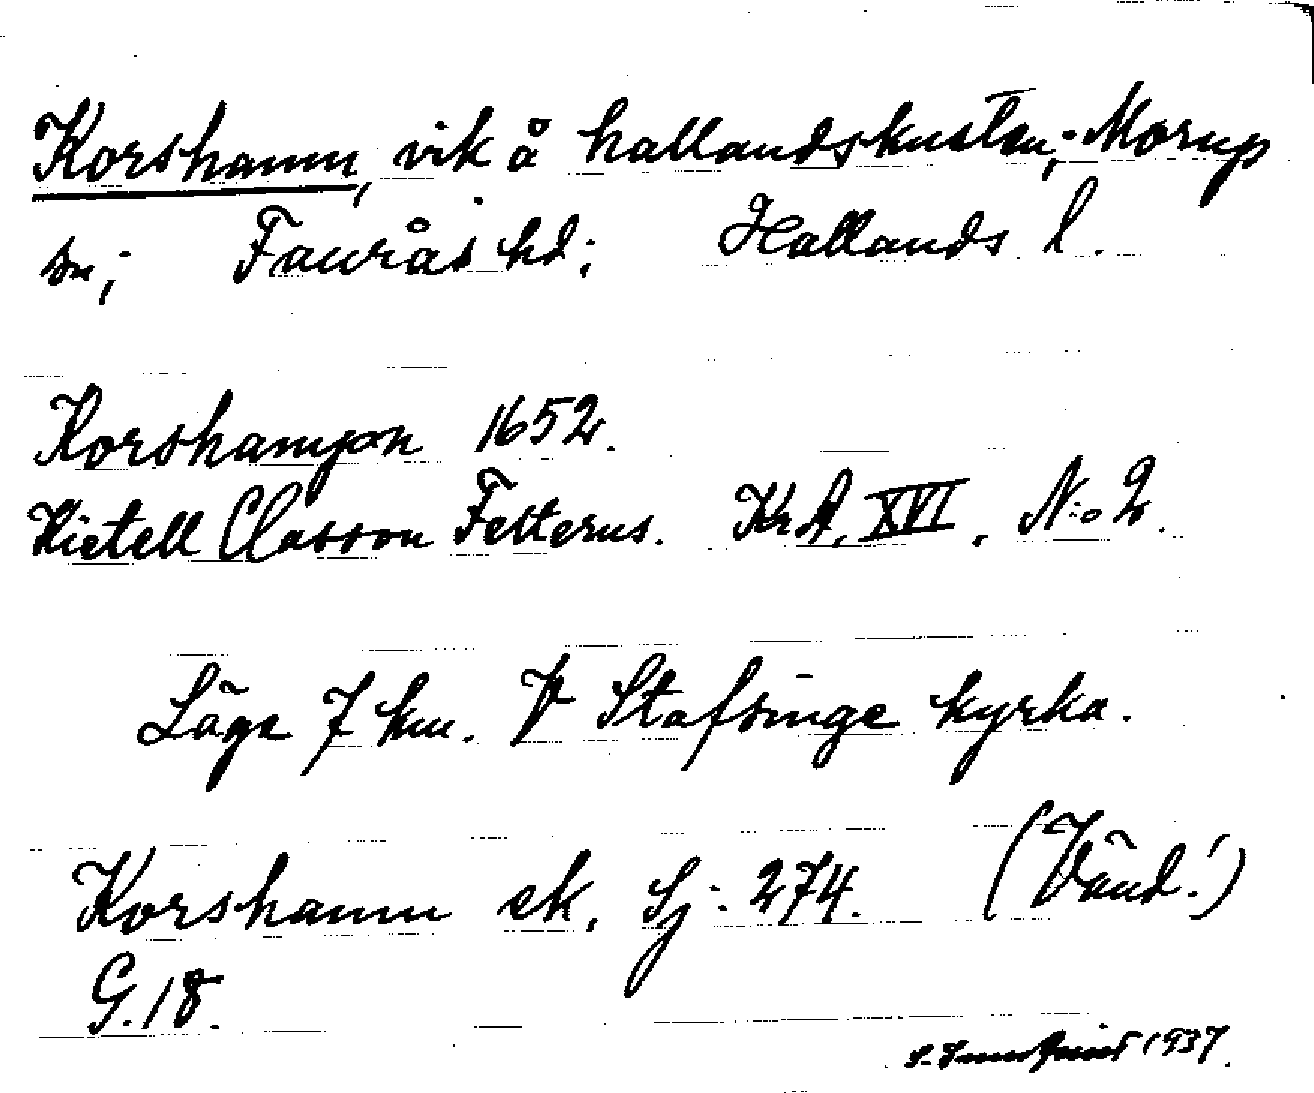 Korshamn, vik å hallandskusten; Morup
sn; Faurås hd; Hallands l.
Korshampn 1652.
Kietell Classon Felterus. KrA, XVI, N:o 2.
Läge 7 km. V Stafsinge kyrka.
Korshamn ek. Sj: 274. (Vänd!)
G. 18.
S. 1937.